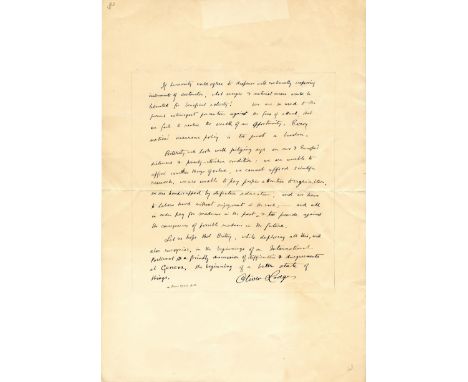 If humanity could agree to dispense with continually improving
instruments of destruction, what energies & material means would be
liberated for beneficial activity! We are so used to the
precaution against the fear of attack, that
we fail to realise the wealth of an opportunity. Every
nation's insurance policy is too great a burden.
Posterity will look with pitying eyes on our & Europe's
distressed & poverty-stricken condition; we are unable to
afford we cannot afford scientific
research, we are unable to pay proper attention to
we are handicapped by defective education, and we have
to labour hard without enjoyment of the and all
in order pay for in the past, & to provide against
the consequences of possible in the future.
Let us hope that History, while deploring all this, will
also recognise, in the beginnings of an International
Parliament & a friendly discussion of difficulties & disagreements
at Geneva, the beginning of a better state of
things.
Oliver Lodge